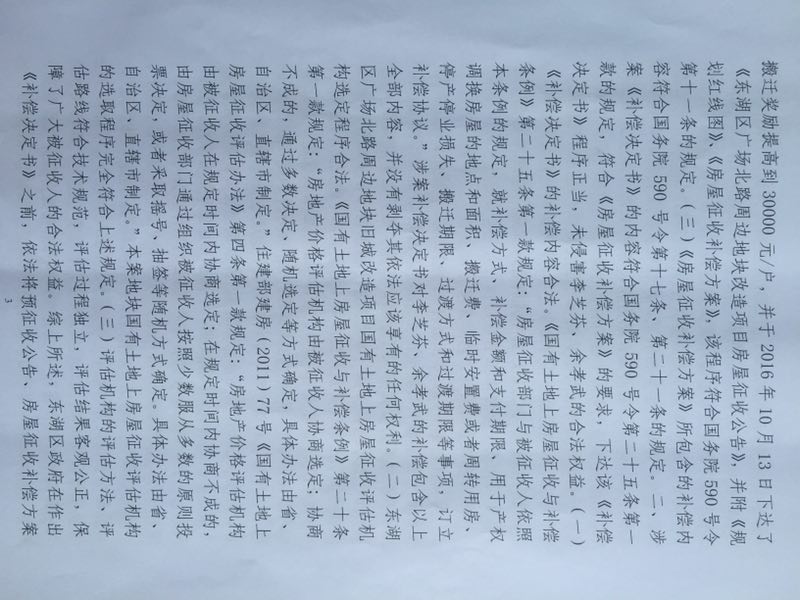 搬迁奖励提高到 30000 元/户，并于 2016 年 10 月 13 日下达了
《东湖区广场北路周边地块改造项目房屋征收公告》，并附《规
划红线图》、《房屋征收补偿方案》，该程序符合国务院 590 号令
第十一条的规定。（三）《房屋征收补偿方案》所包含的补偿内
容符合国务院 590 号令第十七条、第二十一条的规定。二、涉
案《补偿决定书》的内容符合国务院 590 号令第二十五条第一
款的规定，符合《房屋征收补偿方案》的要求，下达该《补偿
决定书》程序正当，未侵害李芝芬、余孝武的合法权益。（一）
《补偿决定书》的补偿内容合法。《国有土地上房屋征收与补偿
条例》第二十五条第一款规定：“房屋征收部门与被征收人依照
本条例的规定，就补偿方式、补偿金额和支付期限、用于产权
调换房屋的地点和面积、搬迁费、临时安置费或者周转用房、
停产停业损失、搬迁期限、过渡方式和过渡期限等事项，订立
补偿协议。”涉案补偿决定书对李芝芬、余孝武的补偿包含以上
全部内容，并没有剥夺其依法应该享有的任何权利。（二）东湖
区广场北路周边地块旧城改造项目国有土地上房屋征收评估机
构选定程序合法。《国有土地上房屋征收与补偿条例》第二十条
第一款规定：“房地产价格评估机构由被征收人协商选定；协商
不成的，通过多数决定、随机选定等方式确定，具体办法由省、
自治区、直辖市制定。”住建部建房（2011）77 号《国有土地上
房屋征收评估办法》第四条第一款规定：“房地产价格评估机构
由被征收人在规定时间内协商选定；在规定时间内协商不成的，
由房屋征收部门通过组织被征收人按照少数服从多数的原则投
票决定，或者采取摇号、抽签等随机方式确定。具体办法由省、
自治区、直辖市制定。”本案地块国有土地上房屋征收评估机构
的选取程序完全符合上述规定。（三）评估机构的评估方法、评
估路线符合技术规范，评估过程独立，评估结果客观公正，保
障了广大被征收人的合法权益。综上所述，东湖区政府在作出
《补偿决定书》之前，依法将预征收公告、房屋征收补偿方案
3